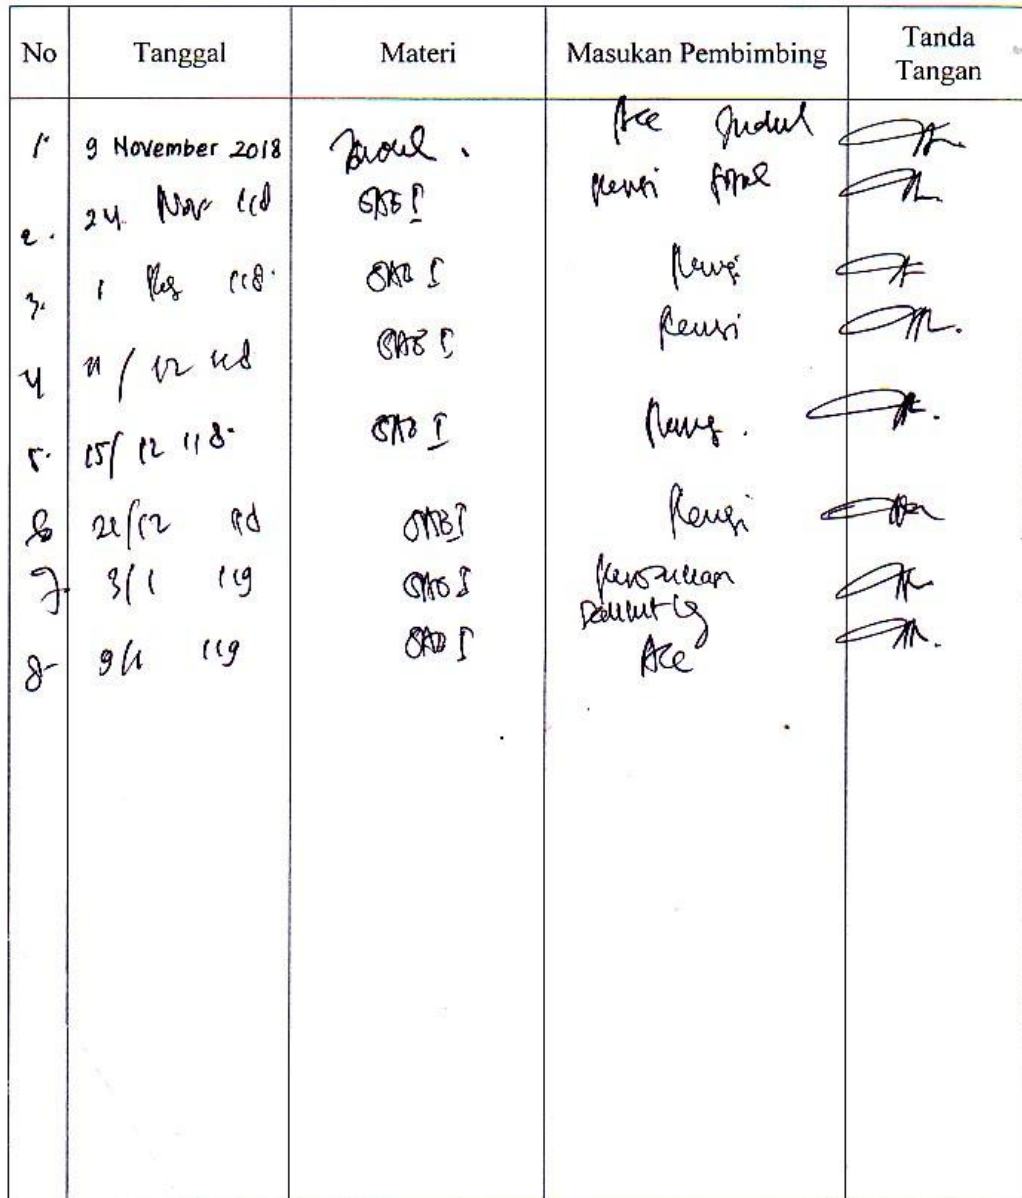 No Tanggal Materi Masukan Pembimbing Tanda Tangan
1. 9 November 2018 Judul . Acc Judul
2. 24 Nov 118 BAB I Revisi
3. 1 118 BAB I Revisi
4 11/12 118 BAB I Revisi
5. 15/12 118 BAB I Revisi .
6 /12 18 BAB I Revisi
7. 3/1 119 BAB I
8 9/1 119 BAB I Acc